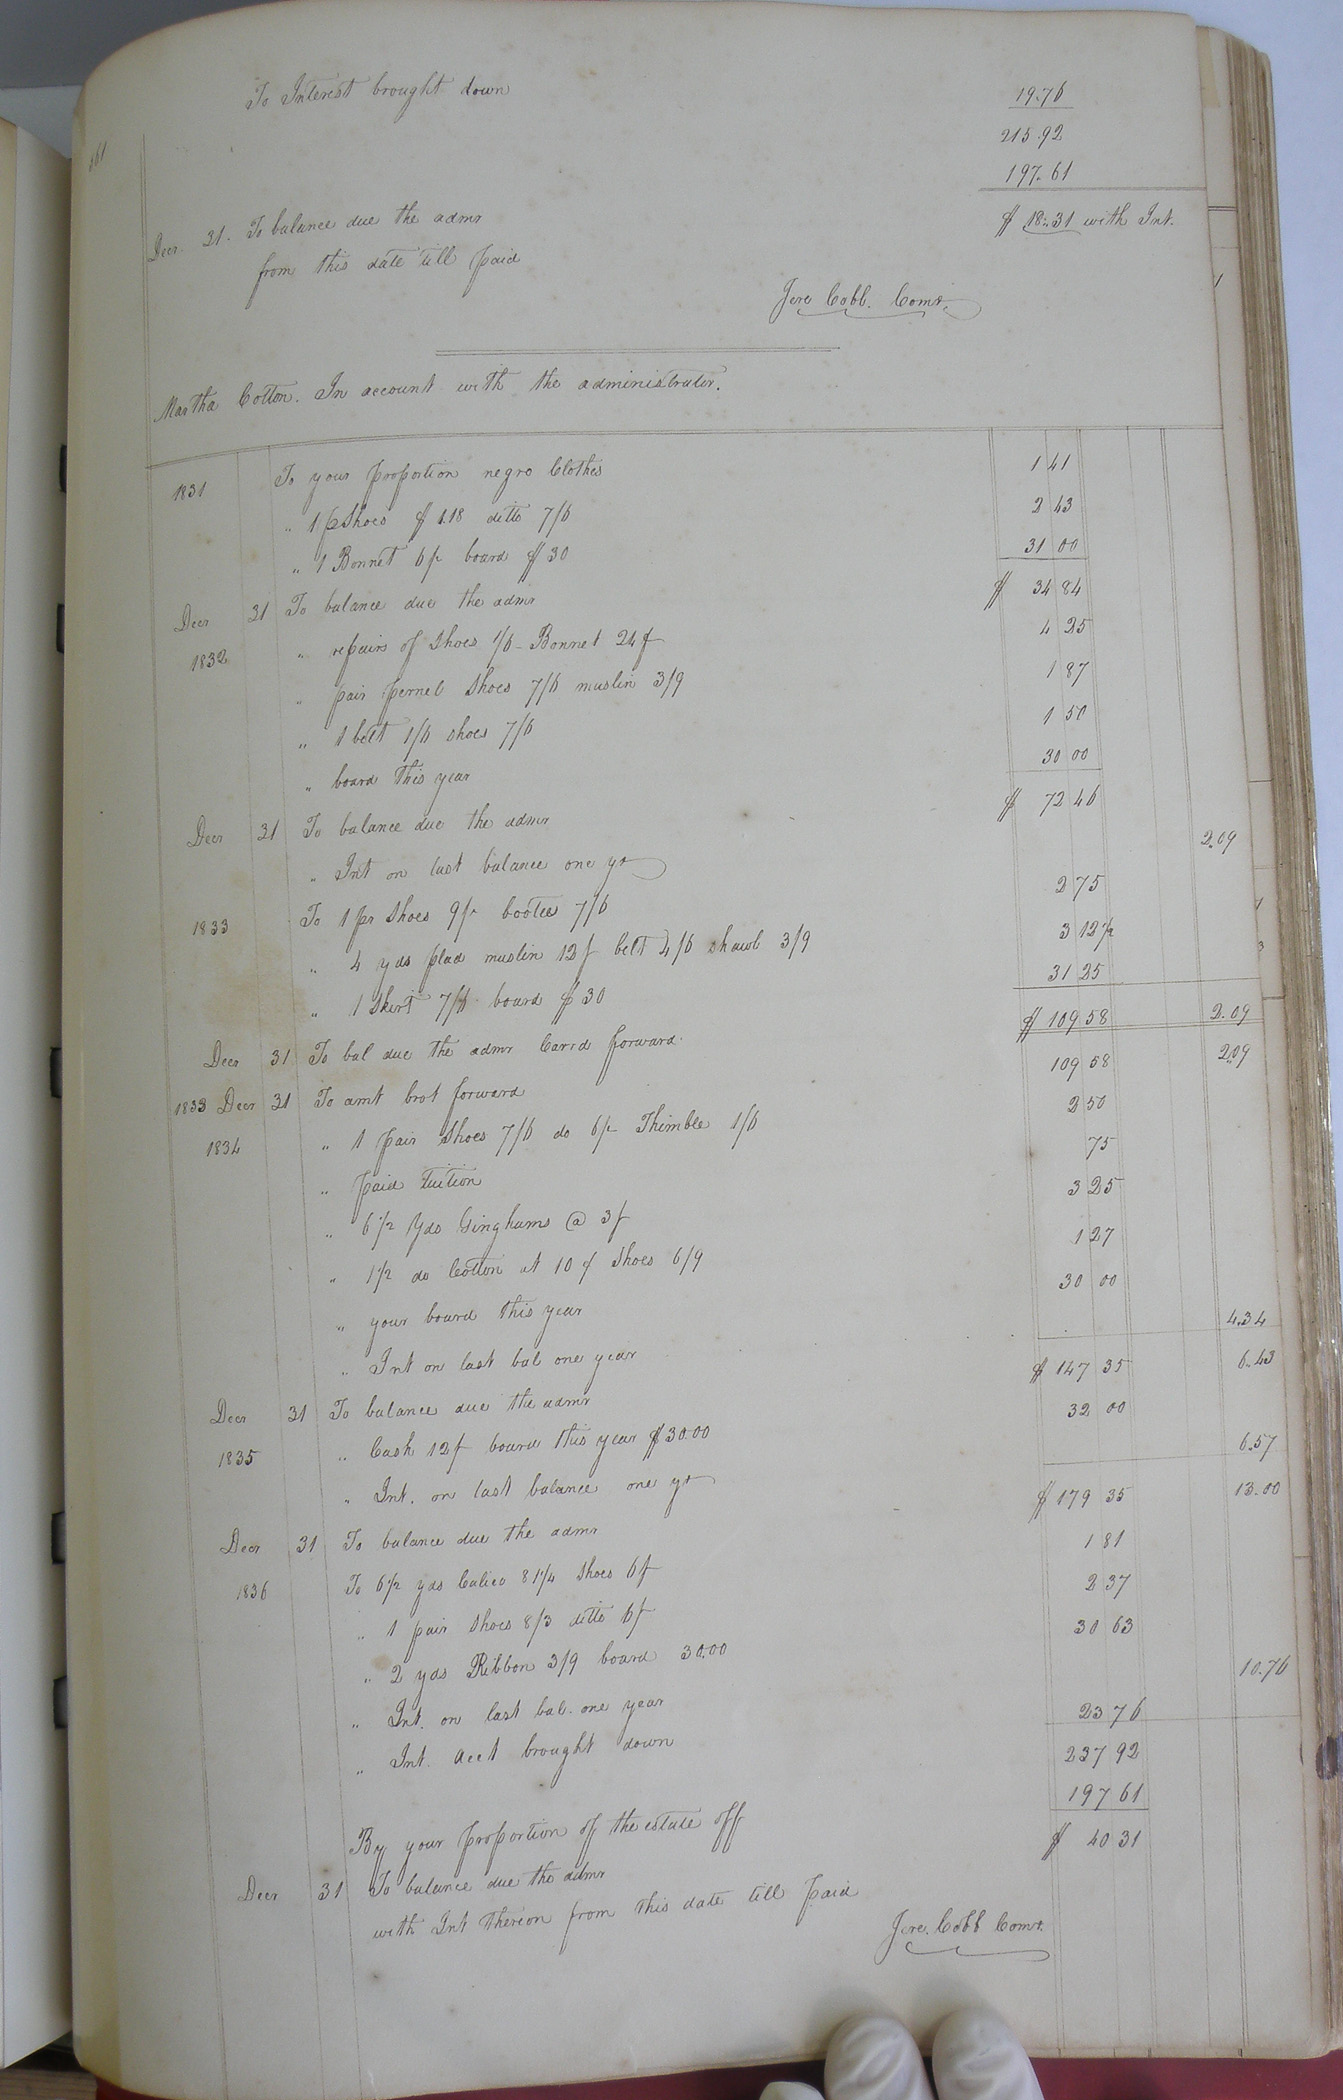 To Interest brought down 19.76
215.92
197.61
Decr 31. To balance due the admr $ 18.31 with Int.
from this date till paid
Jere Cobb. Comr.
Martha Cotton. In account with the administrator.
1831 To your proportion negro Clothes 1 41
" 1 p Shoes $ 1.18 ditto 7/6 2 43
" 1 Bonnet 6/- board $ 30 31 00
Decr 31 To balance due the admr $ 34 84
1832 " repairs of Shoes 1/6 - Bonnet 24/ 4 25
" pair Shoes 7/6 muslin 3/9 1 87
" 1 belt 1/6 shoes 7/6 1 50
" board this year 30 00
Decr 31 To balance due the admr $ 72 46
" Int on last balance one yr 2.09
1833 To 1 pr Shoes 9/- bootes 7/6 2 75
" 4 yds plad muslin 12/ belt 4/6 shawl 3/9 3 12 1/2
" 1 Skirt 7/6 board $ 30 31 25
Decr 31 To bal due the admr Carrd forward. $ 109 58 2.09
1833 Decr 31 To amt brot forward 109 58 2.09
1834 " 1 pair Shoes 7/6 do 6/- Thimble 1/6 2 50
" paid Tuition 75
" 6 1/2 Yds Ginghams @ 3/ 3 25
" 1 1/2 do Cotton at 10 Shoes 6/9 1 27
" your board this year 30 00
" Int on last bal one year 4.34
Decr 31 To balance due the admr $ 147 35 6.43
1835 " Cash 12/ board this year $ 30.00 32 00
" Int. on last balance one yr 6.57
Decr 31 To balance due the admr $ 179 35 13.00
1836 To 6 1/2 yds Calico 8 1/4 Shoes 6/ 1 81
" 1 pair Shoes 8/3 ditto 6/ 2 37
" 2 yds Ribbon 3/9 board 30.00 30 63
" Int. on last bal. one year 10.76
" Int. acct brought down 23 76
237 92
By your proportion of the estate off 197 61
Decr 31 To balance due the admr $ 40 31
with Int thereon from this date till paid
Jere. Cobb Comr.